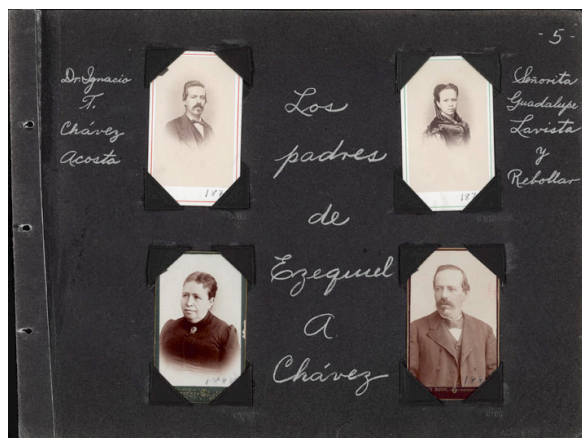 - 5 -
Dr. Ignacio
T.
Chávez
Acosta
Los
padres
de
Ezequiel
A.
Chávez
Señorita
Guadalupe
Lavista
y
Rebollar